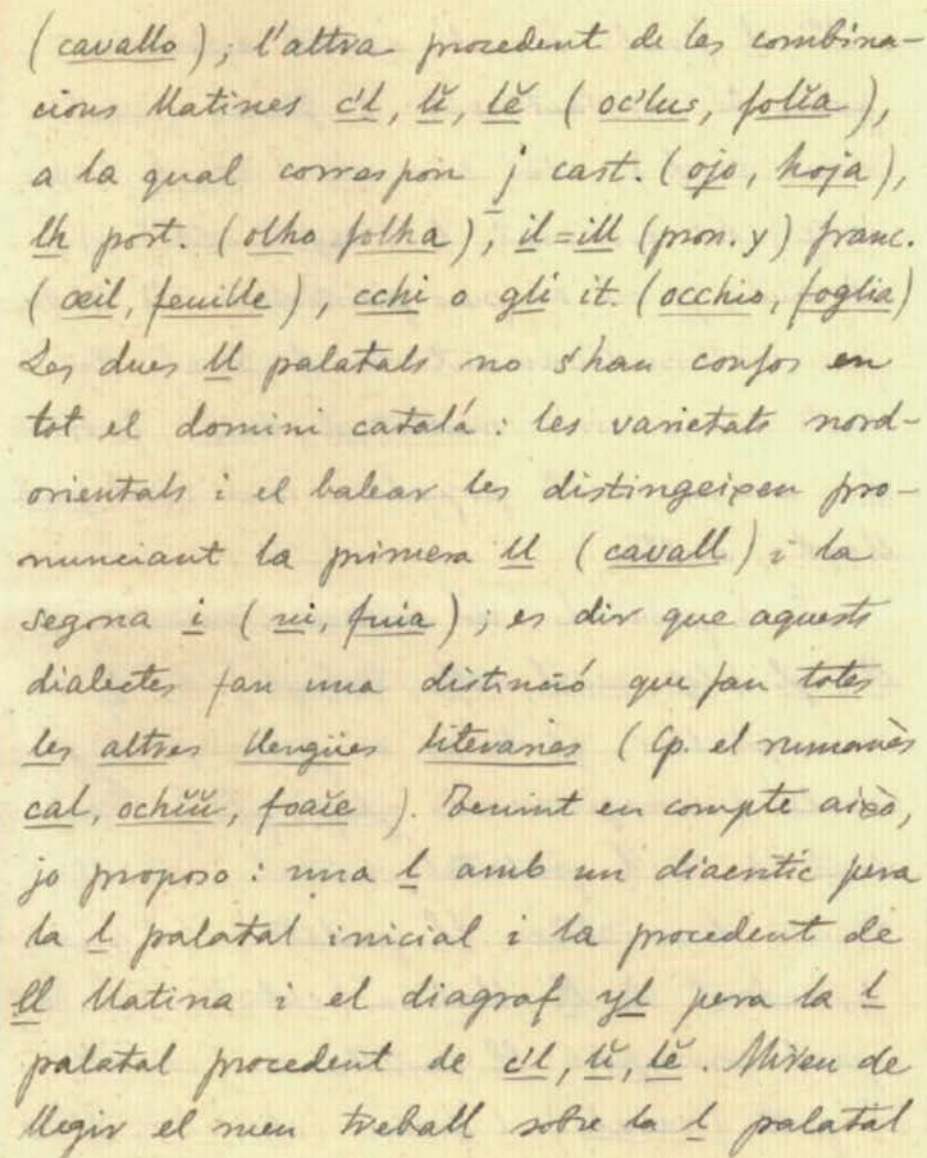 (cavallo); l'altra procedent de les combina-
cions llatines c'l, lĭ, lĕ (oc'lus, folĭa),
a la qual correspon j cast. (ojo, hoja),
lh port. (olho folha), il=ill (pron. y) franc.
(œil, feuille), cchi o gli it. (occhio, foglia)
Les dues ll palatals no s'han confos en
tot el domini català: les varietats nord-
orientals i el balear les distingeixen pro-
nunciant la primera ll (cavall) i la
segona i (ui, fuia); es dir que aquests
dialectes fan una distinció que fan totes
les altres llengües literaries (Cp. el rumanès
cal, ochĭŭ, foaĭe). Tenint en compte això,
jo proposo: una l amb un diacrític pera
la l palatal inicial i la procedent de
ll llatina i el diagraf yl pera la l
palatal procedent de c'l, lĭ, lĕ. Mireu de
llegir el meu treball sobre la l palatal